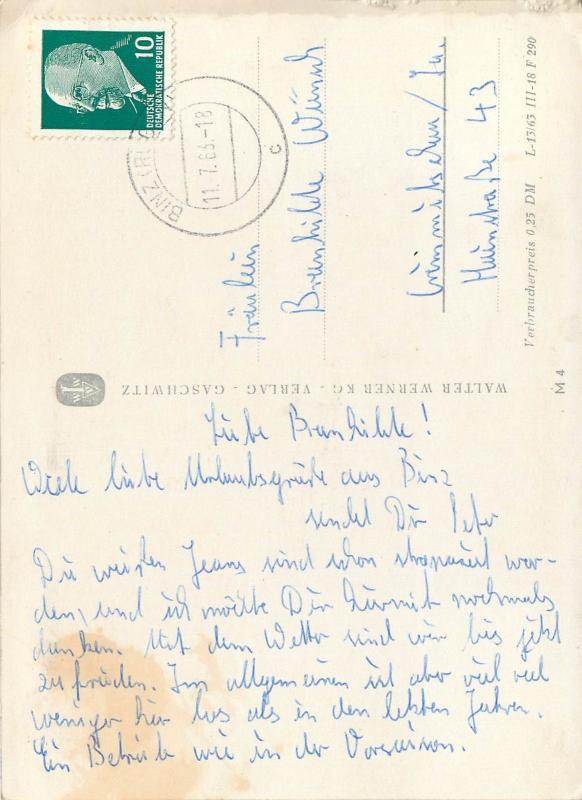 10
DEUTSCHE
DEMOKRATISCHE REPUBLIK
BINZ (RÜGEN)
11.7.63.-18
c
Fräulein
Brunhilde Wünsch
Crimmitschau / Sa.
43
Verbraucherpreis 0,25 DM L-13/63 III-18 F 290
M 4
WALTER WERNER KG - VERLAG - GASCHWITZ
Liebe Brunhilde!
Viele liebe Urlaubsgrüße aus Binz
sendet Dir Peter
Die weißen Jeans sind schon strapaziert wor-
den, und ich möchte Dir hiermit nochmals
danken. Mit dem Wetter sind wir bis jetzt
zufrieden. Im allgemeinen ist aber viel viel
weniger hier los als in den letzten Jahren.
Ein Betrieb wie in der Vorsaison.